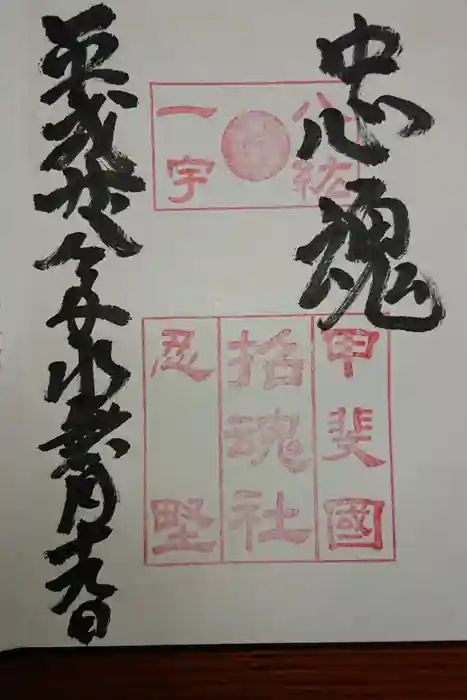 忠魂
八紘
一宇
甲斐國
招魂社
忍野
平成廿八年水無月十九日